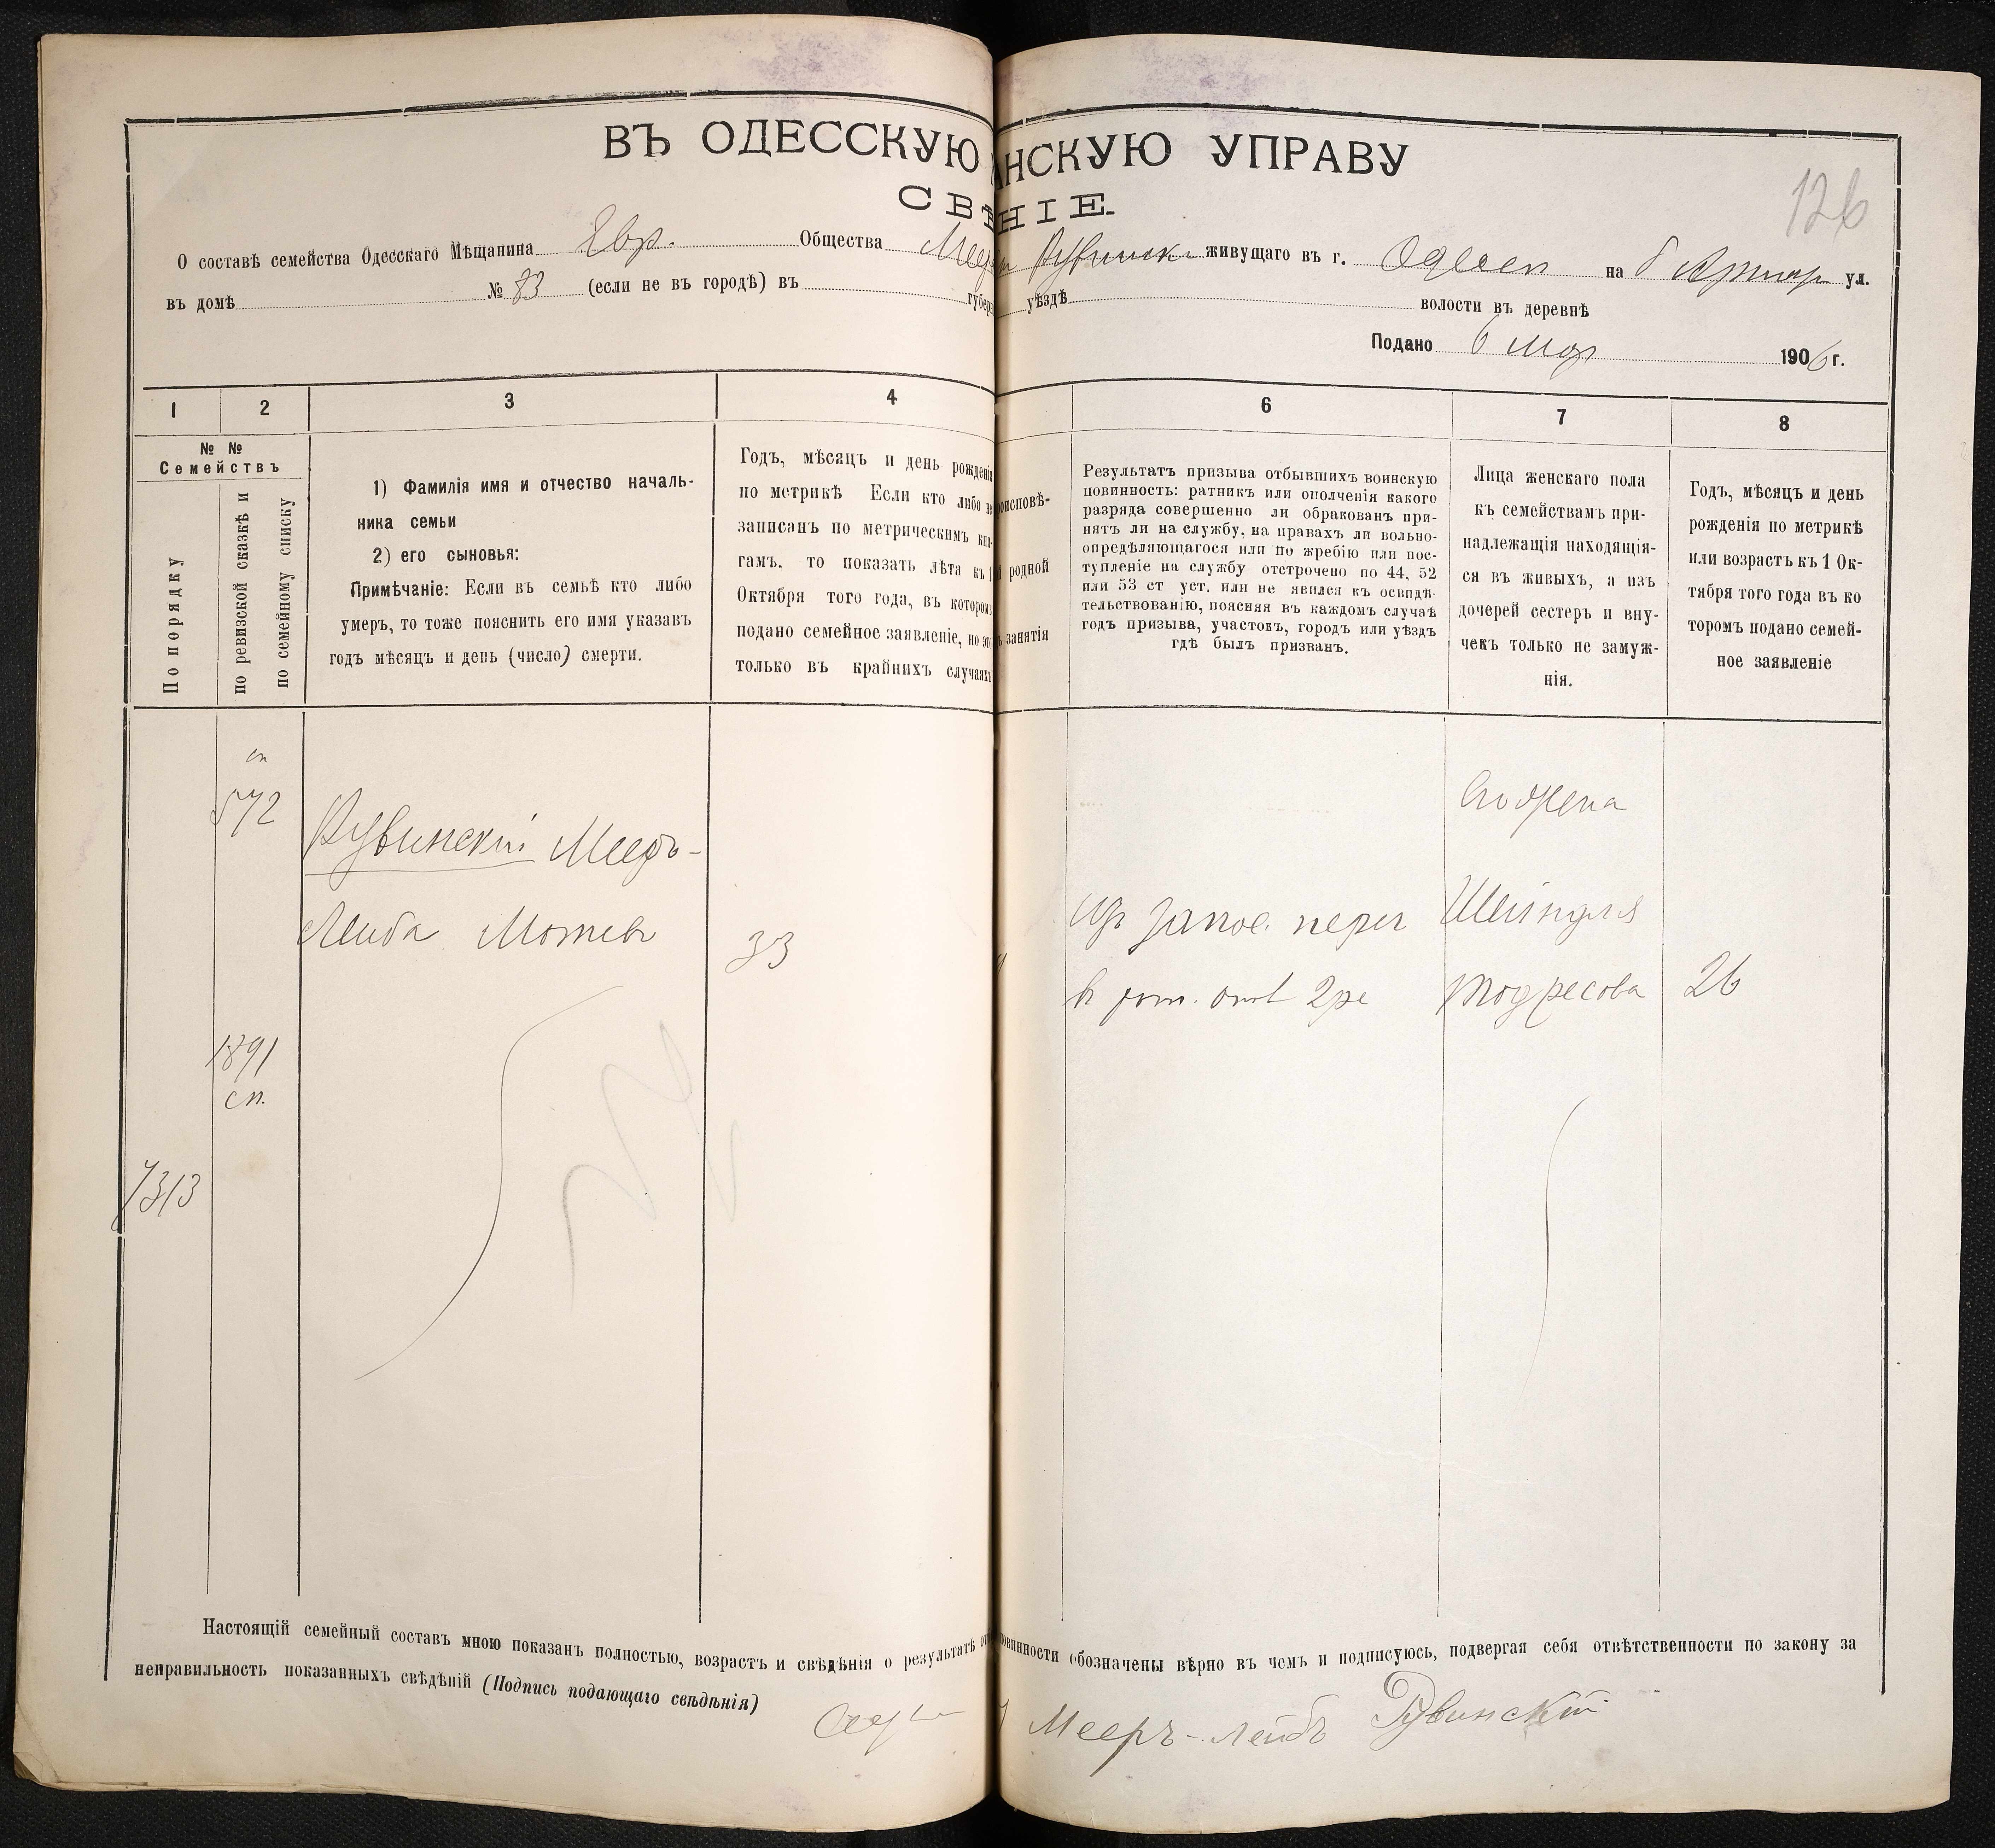 ВЪ ОДЕССКУЮ НСКУЮ УПРАВУ
СВѢ НІЕ.
126
О составѣ семейства Одесскаго Мѣщанина Евр. Общества Меер Рувинск живущаго въ г. Одессѣ на ул.
въ домѣ № 83 (если не въ городѣ) въ губерн уѣздѣ волости въ деревнѣ
Подано 6 1906 г.
1 2 3 4 6 7 8
№ №
Семействъ
По порядку
по ревизской сказкѣ и
по семейному списку
1) Фамилія имя и отчество началь-
ника семьи
2) его сыновья:
Примѣчаніе: Если въ семьѣ кто либо
умеръ, то тоже пояснить его имя указавъ
годъ мѣсяцъ и день (число) смерти.
Годъ, мѣсяцъ и день рожденія
по метрикѣ Если кто либо не
записанъ по метрическимъ кни-
гамъ, то показать лѣта къ 1
Октября того года, въ которомъ
подано семейное заявленіе, но это
только въ крайнихъ случаяхъ
оисповѣ-
родной
занятія
Результатъ призыва отбывшихъ воинскую
повинность: ратникъ или ополченія какого
разряда совершенно ли обракованъ при-
нятъ ли на службу, на правахъ ли вольно-
опредѣляющагося или по жребію или пос-
тупленіе на службу отстрочено по 44, 52
или 53 ст уст. или не явился къ освидѣ-
тельствованію, поясняя въ каждомъ случаѣ
годъ призыва, участокъ, городъ или уѣздъ
гдѣ былъ призванъ.
Лица женскаго пола
къ семействамъ при-
надлежащія находящія-
ся въ живыхъ, а изъ
дочерей сестеръ и вну-
чекъ только не замуж-
нія.
Годъ, мѣсяцъ и день
рожденія по метрикѣ
или возрастъ къ 1 Ок-
тября того года въ ко
торомъ подано семей-
ное заявленіе
сп
572
Рувинскій Мееръ-
Лейба Мотев
33
1891
сп.
7313
его жена
Из запос. пер
в рат. опол 2 ра
Шейндля
Тодресова
26
Настоящій семейный составъ мною показанъ полностью, возрастъ и свѣдѣнія о результатѣ от овинности обозначены вѣрно въ чемъ и подписуюсь, подвергая себя отвѣтственности по закону за
неправильность показанныхъ свѣдѣній (Подпись подающаго свѣдѣнія)
Мееръ-Лейбъ Рувинскій